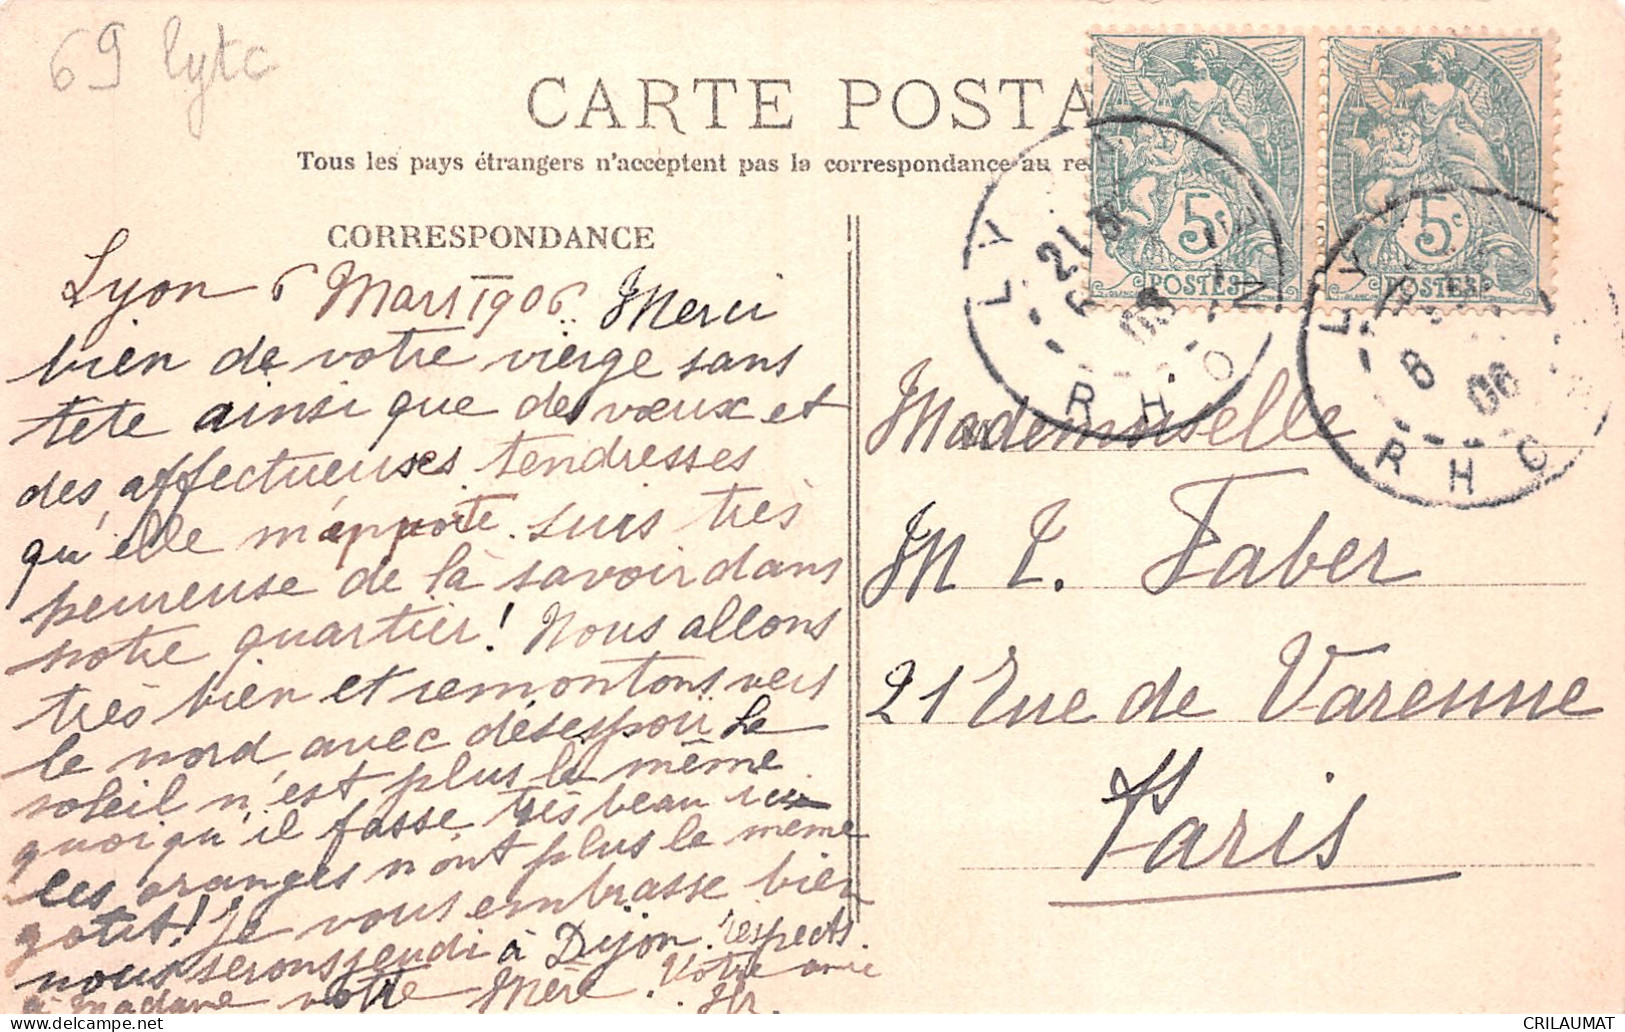 69 Lytc
CARTE POSTA
Tous les pays étrangers n'acceptent pas la correspondance au re
CORRESPONDANCE
Lyon 6 Mars 1906. Merci
bien de votre vierge sans
tete ainsi que des vœux et
des affectueuses tendresses
qu'elle m'apporte. suis très
heureuse de la savoir dans
notre quartier! Nous allons
très bien et remontons vers
le nord, avec désespoir. Le
soleil n'est plus le même
quoiqu'il fasse très beau ici
les oranges n'ont plus le meme
gout! Je vous embrasse bien
nous serons jeudi à Dijon. respects
à Madame votre Mère. Votre amie
Hr.
LYON
RHONE
21
6
06
5c
POSTES
5c
POSTES
LY
RHO
6
06
Mademoiselle
M L. Faber
21 Rue de Varenne
Paris
CRILAUMAT